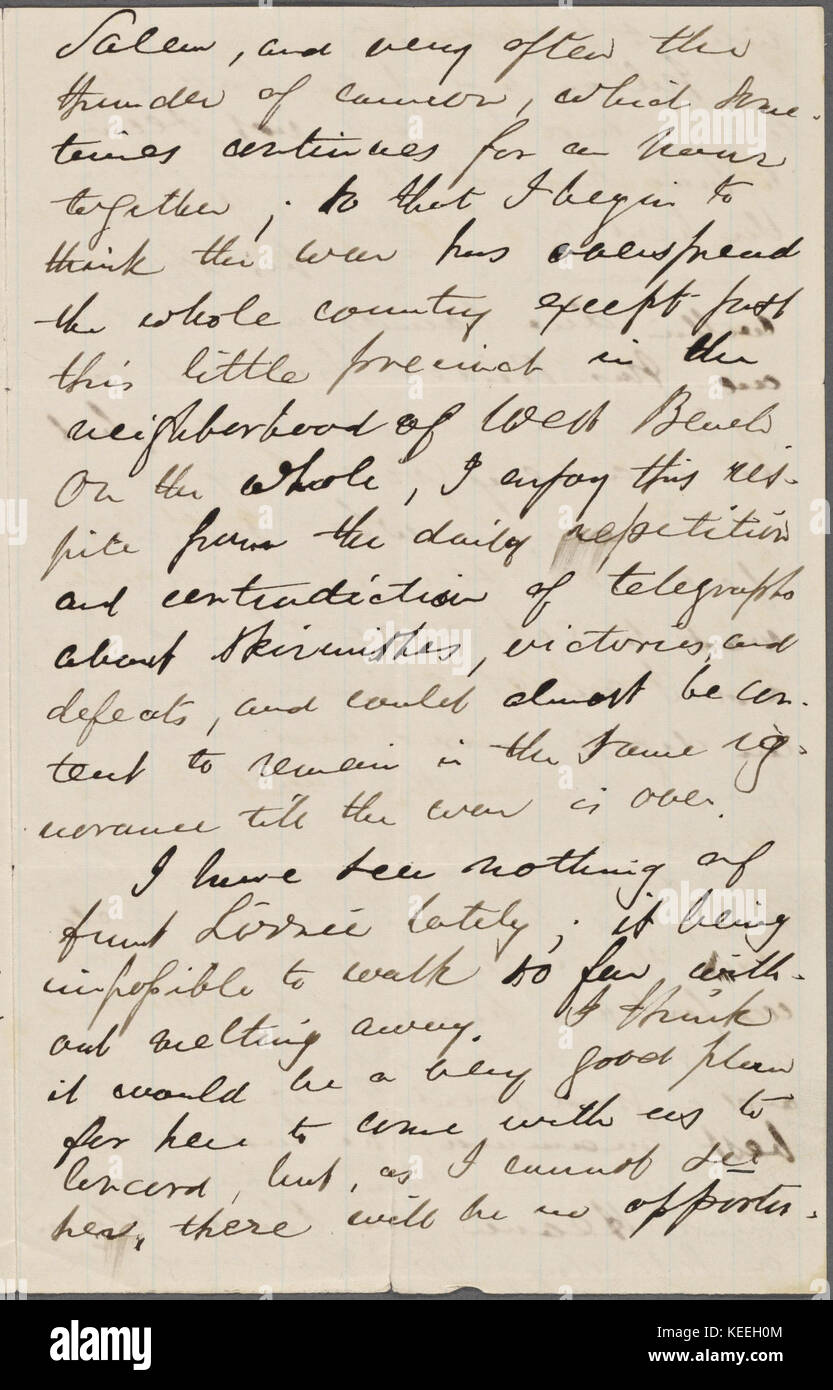 Salem, and very often the
thunder of cannon, which some-
times continues for an hour
together; so that I begin to
think the war has overspread
the whole country except just
this little precinct in the
neighborhood of West Beach
On the whole, I enjoy this res-
pite from the daily repetition
and contradiction of telegraphs
about skirmishes, victories, and
defeats, and could almost be con-
tent to remain in the same ig-
norance till the war is over.
I have seen nothing of
Aunt Lizzie lately; it being
impossible to walk so far with-
out melting away. I think
it would be a very good plan
for her to come with us to
Concord, but, as I cannot see
her, there will be no opportu-
alamy
alamy
Image ID: KEEH0M
www.alamy.com